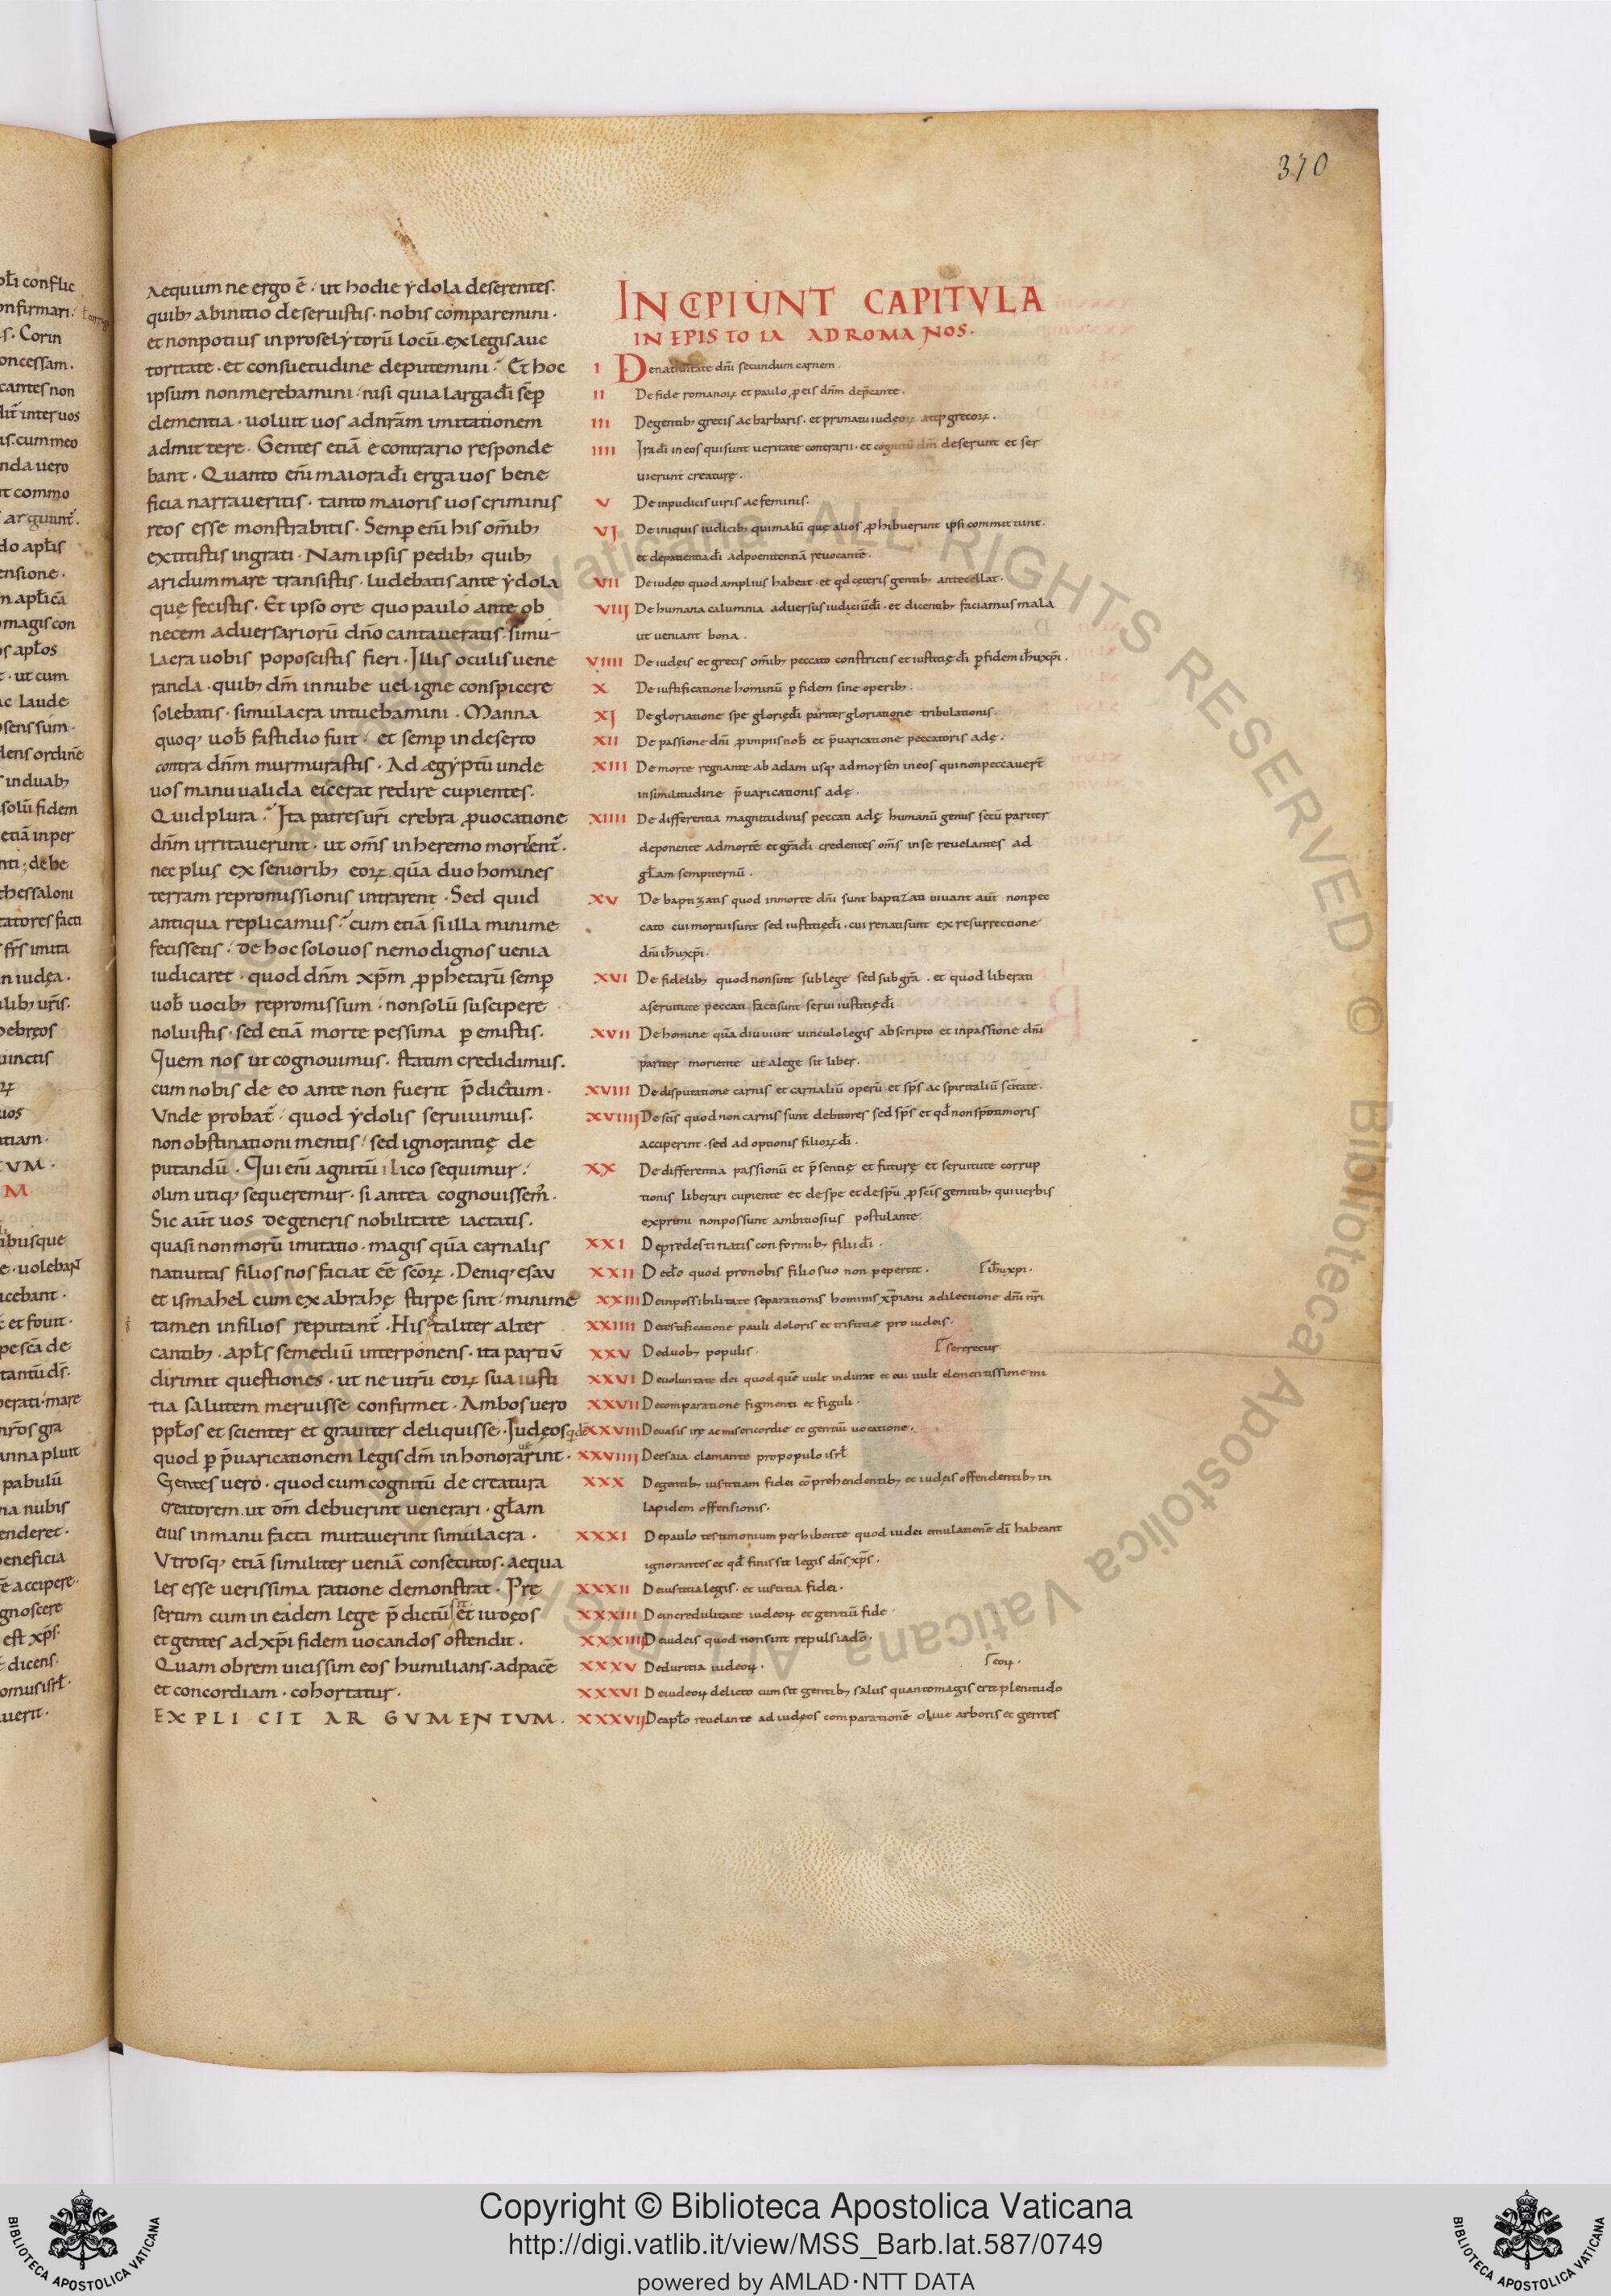 370
Aequum ne ergo ē· ut hodie ẏdola deserentes·
quib; abinitio deseruistis· nobis comparemini·
et non potius inproselẏtorū locū· ex legis auc
toritate· et consuetudine deputemini· Et hoc
ipsum non merebamini· nisi quia larga dī sēp
clementia· voluit uos adnr̄am imitationem
admittere· Gentes etiā e contrario responde
bant· Quanto eni maiora dī erga uos bene
ficia narraveritis· tanto maioris uos criminis
reos esse monstrabitis· Semp̄ eni his om̄ib;
extitistis ingrati· Nam ipsis pedib; quib;
aridum mare transistis· ludebatis ante ẏdola
quę fecistis· Et ipso ore quo paulo ante ob
necem adversariorū dn̄o cantaveratis· simu
lacra uobis poposcistis fieri· Illis oculis uene
randa· quib; dm̄ in nube uel igne conspicere
solebatis· simulacra intuebamini· Manna
quoq; uob̄ fastidio fuit· et semp̄ in deserto
contra dn̄m murmurastis· Ad ægẏptū unde
uos manu valida eicerat redire cupientes·
Quid plura· Ita patres ur̄i crebra ꝓuocatione
dn̄m irritaverunt· ut om̄s in heremo morirent̄·
nec plus ex seniorib; eoꝝ quā duo homines
terram repromissionis intrarent· Sed quid
antiqua replicamus· cum etiā si illa minime
fecissetis· de hoc solo uos nemo dignos uenia
iudicaret· quod dn̄m xp̄m ꝓphetarū semp̄
uob̄ uocib; repromissum· non solū suscipere
noluistis· sed etiā morte pessima ꝑemistis·
Quem nos ut cognovimus· statim credidimus·
cum nobis de eo ante non fuerit p̄dictum·
Vnde probat̄· quod ẏdolis servivimus·
non obstinationi mentis· sed ignorantię de
putandū· Qui eni agnitū ilico sequimur·
olim utiq; sequeremur· si antea cognovissem̄·
Sic aut̄ uos de generis nobilitate iactatis·
quasi non morū imitatio· magis quā carnalis
nativitas filios nos faciat eē sc̄oꝝ· Deniq; esau
et ismahel cum ex abrahę stirpe sint· minime
tamen in filios reputant̄· His taliter alter
cantib;· apl̄s se mediū interponens· ita partiū
dirimit questiones· ut neutrū eoꝝ sua iusti
tia salutem meruisse confirmet· Ambos uero
ppl̄os et scienter et graviter deliquisse· Iudęos qdē
quod ꝑ p̄uaricationem legis dm̄ inhonorarint·
Gentes uero· quod cum cognitū de creatura
creatorem ut dm̄ debuerint venerari· gl̄am
eius in manu facta mutaverint simulacra·
Vtrosq; etiā similiter veniā consecutos· aequa
les esse verissima ratione demonstrat· Prę
sertim cum in eadem lege p̄dictū sit et iudęos
et gentes ad xp̄i fidem uocandos ostendit·
Quam obrem vicissim eos humilians· ad pacē
et concordiam· cohortatur·
EXPLICIT ARGVMENTVM·
INCIPIUNT CAPITVLA
IN EPISTOLA AD ROMANOS·
I De nativitate dn̄i secundum carnem·
II De fide romanoꝝ et paulo ꝓ eis dn̄m dep̄cante·
III De gentib; grecis ac barbaris· et primatu iudeoꝝ atq; grecoꝝ·
IIII Ira dī in eos qui sunt veritate contrarii· et cognitū dm̄ deserunt et ser
uierunt creaturę·
V De inpudicis viris ac feminis·
VI De iniquis iudicib; qui malū que alios ꝓhibuerunt ipsi committunt·
et de patientia dī ad poenitentiā revocante·
VII De iudęo quod amplius habeat· et qd̄ ceteris gentib; antecellat·
VIII De humana calumnia adversus iudiciū dī· et dicentib; faciamus mala
ut veniant bona·
VIIII De iudęis et grecis om̄ib; peccato constrictis et iustitię dī ꝑ fidem ih̄u xp̄i·
X De iustificatione hominū ꝑ fidem sine operib;
XI De gloriatione spe glorię dī pariter gloriatione tribulationis·
XII De passione dn̄i ꝓ impiis nob̄ et p̄uaricatione peccatoris adę·
XIII De morte regnante ab adam usq; ad moẏsen in eos qui non peccaver̄t
in similitudine p̄uaricationis adę·
XIIII De differentia magnitudinis peccati adę humanū genus secū pariter
deponente ad mortē et gr̄a dī credentes om̄s in se revelantes ad
gl̄am sempiternū·
XV De baptizatis quod in morte dn̄i sunt baptizati vivant aut̄ non pec
cato cui mortui sunt sed iustitię dī· cui renati sunt ex resurrectione
dn̄i ih̄u xp̄i·
XVI De fidelib; quod non sint sub lege sed sub gr̄a· et quod liberati
a servitute peccati facti sunt servi iustitię dī·
XVII De homine quā diu vivit vinculo legis abscripto et in passione dn̄i
pariter moriente ut a lege sit liber·
XVIII De disputatione carnis et carnaliū operū et sp̄s ac spiritaliū sc̄itate·
XVIIII De sc̄is quod non carnis sunt debitores sed sp̄s et qd̄ non sp̄m timoris
acciperint· sed adoptionis filioꝝ dī·
XX De differentia passionū et p̄sentię et futurę et servitute corrup
tionis liberari cupiente et de spe et de sp̄u ꝓ sc̄is gemitib; qui verbis
exprimi non possunt ambitiosius postulante
XXI De predestinatis conformib; filii dī·
XXII De dō quod pro nobis filio suo non pepercit· ih̄u xp̄i·
XXIII De inpossibilitate separationis hominis xp̄iani a dilectione dn̄i nr̄i
XXIIII De testificatione pauli doloris et tristitię pro iudęis·
XXV De duob; populis·
XXVI De voluntate dei quod quē vult indurat et cui vult clementissime mi
sereretur
XXVII De comparatione figmenti et figuli·
XXVIII De vasis irę ac misericordię et gentiū vocatione·
XXVIIII De esaia clamante pro populo isrl̄
XXX De gentib; iustitiam fidei cōprehendentib; et iudęis offendentib; in
lapidem offensionis·
XXXI De paulo testimonium perhibente quod iudei emulationē dī habeant
ignorantes et qd̄ finis sit legis dn̄s xp̄s·
XXXII De iustitia legis· et iustitia fidei·
XXXIII De incredulitate iudeoꝝ et gentiū fide
XXXIIII De iudeis quod non sint repulsi a dō·
XXXV De duritia iudeoꝝ· eoꝝ·
XXXVI De iudeoꝝ delicto cum sit gentib; salus quanto magis erit plenitudo
XXXVII De apl̄o revelante ad iudęos comparationē olive arboris et gentes
Copyright © Biblioteca Apostolica Vaticana
http://digi.vatlib.it/view/MSS_Barb.lat.587/0749
powered by AMLAD·NTT DATA
BIBLIOTECA APOSTOLICA VATICANA
BIBLIOTECA APOSTOLICA VATICANA